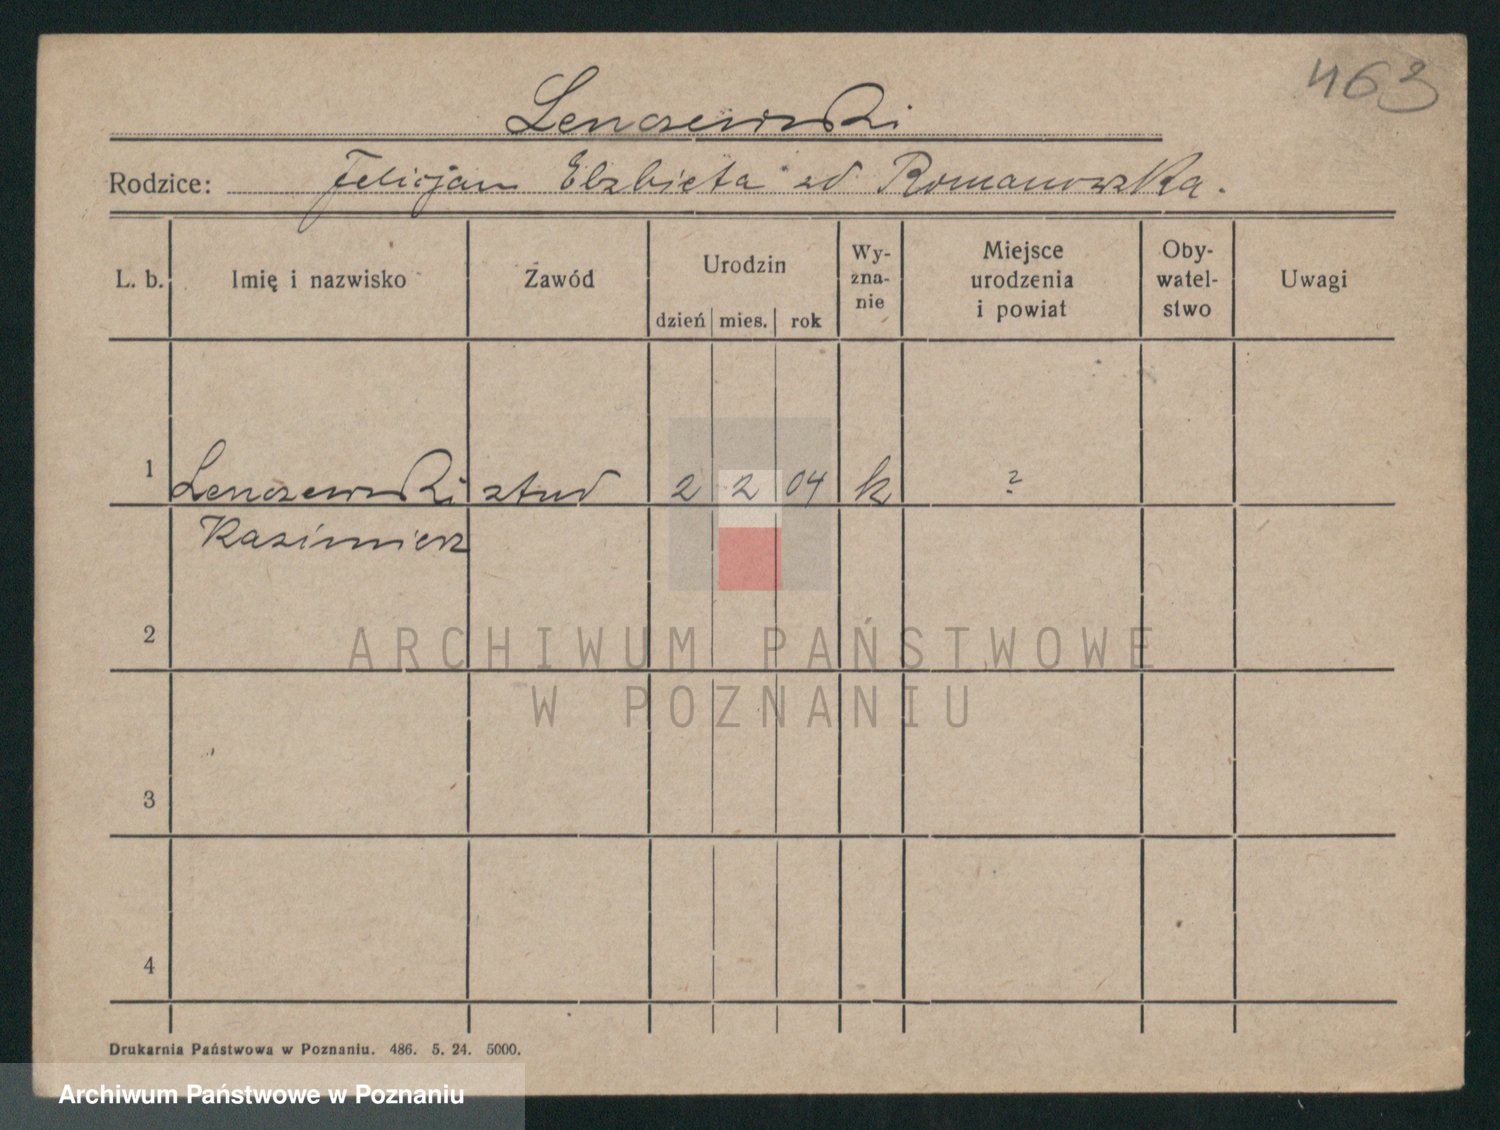 463
Lenczewski
Rodzice: Felicjan Elzbieta zd Romanowska.
L. b. Imię i nazwisko Zawód Urodzin Wy- Miejsce Oby- Uwagi
zna- urodzenia watel-
nie i powiat stwo
dzień mies. rok
1 Lenczewski stud 2 2 04 k ?
Kazimierz
2
ARCHIWUM PAŃSTWOWE
W POZNANIU
3
4
Drukarnia Państwowa w Poznaniu. 486. 5. 24. 5000.
Archiwum Państwowe w Poznaniu